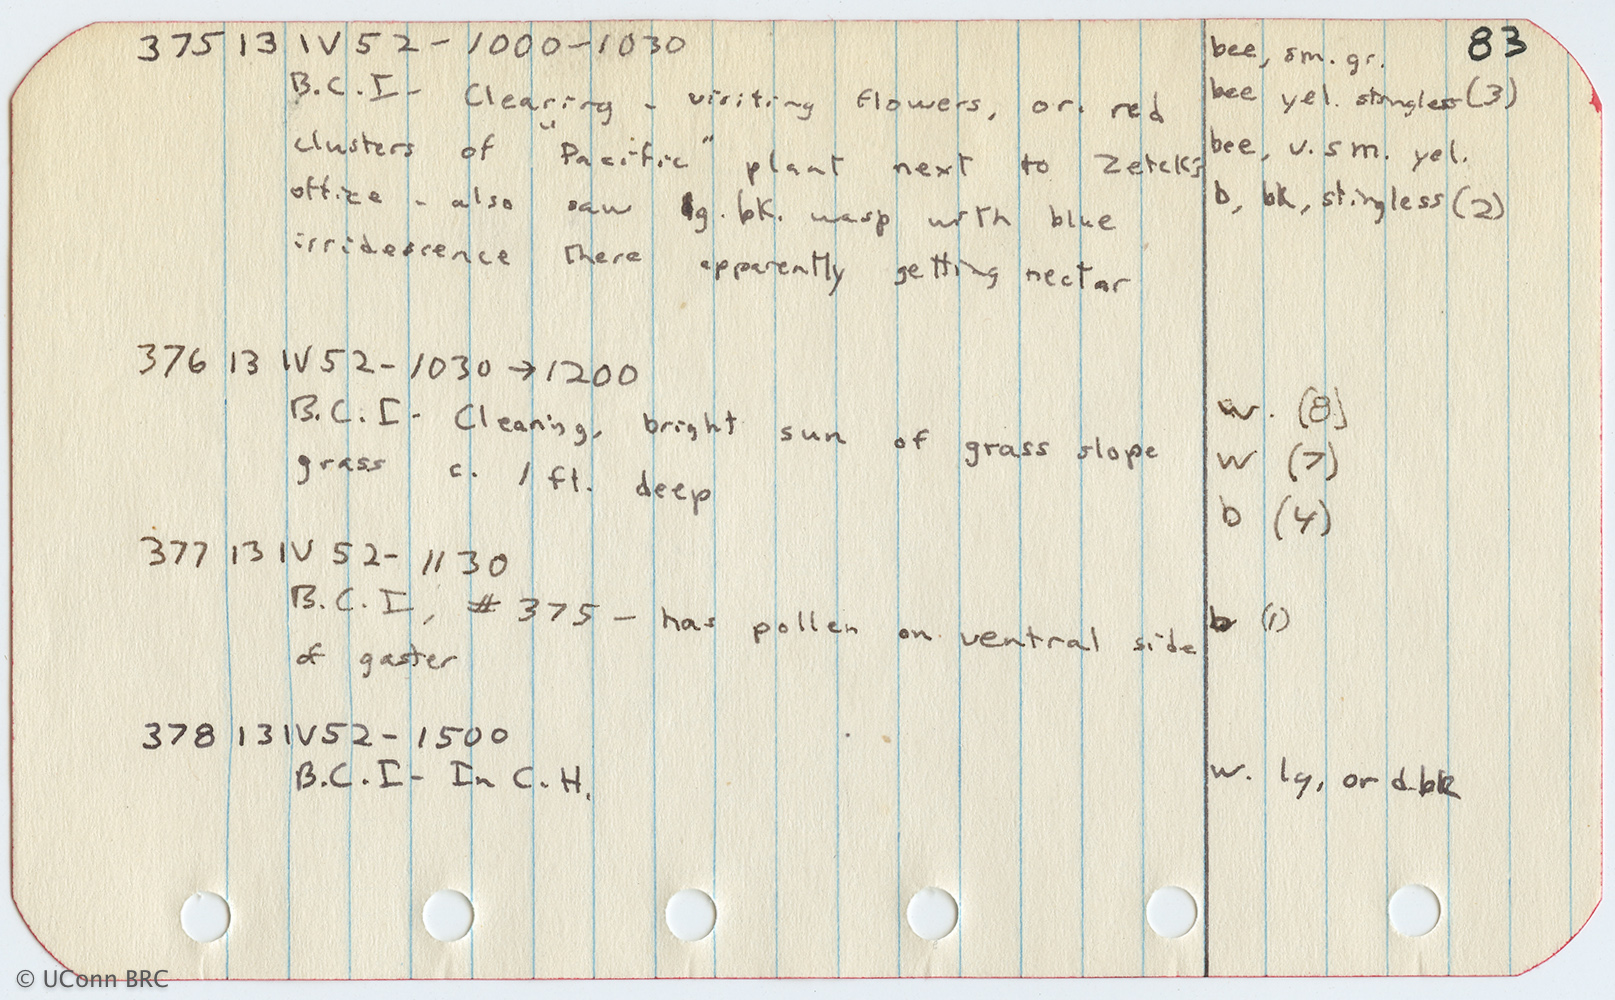 83
375 13 IV 52 - 1000-1030
B.C.I - Clearing - visiting flowers, or. red
clusters of "Pacific" plant next to Zetek's
office - also saw lg. bk. wasp with blue
irridescence there apparently getting nectar
bee, sm. gr.
bee yel. stingless (3)
bee, v. sm. yel.
b, bk, stingless (2)
376 13 IV 52 - 1030 → 1200
B.C.I - Clearing, bright sun of grass slope
grass c. 1 ft. deep
w. (8)
w (7)
b (4)
377 13 IV 52 - 1130
B.C.I, # 375 - has pollen on ventral side
of gaster
b (1)
378 13 IV 52 - 1500
B.C.I - In C.H.
w. lg, or d.bk
© UConn BRC